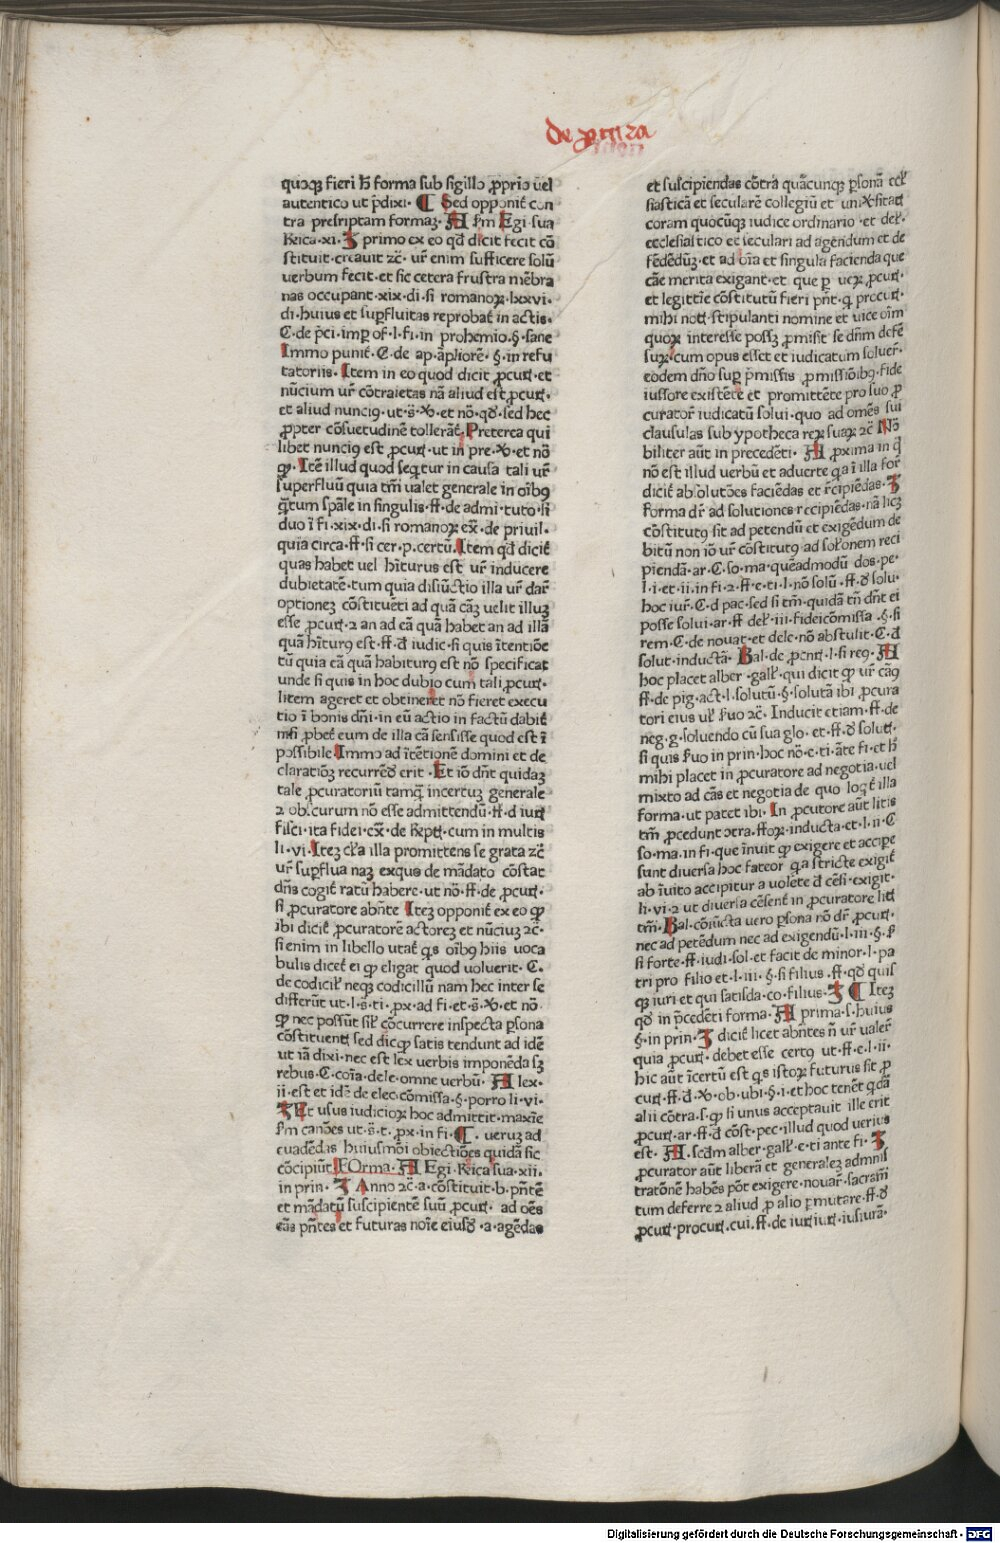 quoqꝫ fieri hꝰ forma sub sigillo ꝓprio uel
autentico ut p̄dixi· ¶ Sed opponit̄ con
tra presriptam formaꝫ· A s̄m Egi·sua
Rrica·xi· J primo ex eo qđ dicit fecit cō
stituit·creauit ⁊c̄· ur̄ enim sufficere solū
uerbum fecit·et sic cetera frustra mēbra
nas occupant·xix·di·si romanoꝝ·lxxvi·
di·huius et suꝑfluitas reprobat̄ in actis·
C·de p̄ci·imꝑ of·l·fi·in prohemio·§·sane
Immo punit̄·C·de ap·āpliorē·§·in refu
tatoriis·Item in eo quod dicit ꝓcur̄·et
nūcium ur̄ cōtraietas nā aliud est ꝓcur̄·
et aliud nunciꝰ·ut·s̄·ꝟ·et nō·qđ·sed hec
ꝓpter cōsuetudinē tollerāt̄·Preterea qui
libet nunciꝰ est ꝓcur̄·ut in pre·ꝟ·et nō
ꝙ·Itē illud quod seq̄tur in causa tali ur̄
superfluū quia tm̄ ualet generale in oībꝰ
q̄tum sp̄ale in singulis·ff·de admi·tuto·si
duo ī fi·xix·di·si romanoꝝ ex̄·de priuil·
quia circa·ff·si cer·p·certū·Item qđ dicit̄
quas habet uel hīturus est ur̄ inducere
dubietatē·tum quia disiūctio illa ur̄ dar̄
optioneꝫ cōstituēti ad quā cāꝫ uelit illuꝫ
esse ꝓcur̄·2 an ad cā quā habet an ad illā
quā hīturꝰ est·ff·đ iudic·si quis ītentiōe
tū quia cā quā habiturꝰ est nō specificat
unde si quis in hoc dubio cum tali ꝓcur̄·
litem ageret et obtineret nō fieret execu
tio ī bonis dn̄i·in eū actio in factū dabit̄
nisi ꝓbet̄ eum de illa cā sensisse quod est ī
possibile Immo ad ītētionē domini et de
claratiōꝫ recurrēđ erit·Et iō dn̄t quidaꝫ
tale ꝓcuratoriū tamq̄ incertuꝫ generale
2 obscurum nō esse admittendū·ff·đ iur̄
fisci·ita fidei·ex̄·de Rr̄ipt·cum in multis
li·vi·Iteꝫ cl̄a illa promittens se grata ⁊c̄
ur̄ suꝑflua naꝫ exquo de mādato cōstat
dn̄s cogit̄ ratū habere·ut nō·ff·de ꝓcur̄·
si ꝓcuratore abn̄te Iteꝫ opponit̄ ex eo ꝙ
ibi dicit̄ ꝓcuratorē actoreꝫ et nūciuꝫ 2c̄·
si enim in libello utat̄ q̄s oībꝰ hiis uoca
bulis dicet̄ ei ꝙ eligat quod uoluerit·C·
de codicil̄ neqꝫ codicillū nam hec inter se
differūt ut·l·s̄·ti·px·ad fi·et·s̄·ꝟ·et nō·
ꝙ nec possūt sil̄ cōcurrere inspecta ꝑsona
cōstituent̄ sed dicꝙ satis tendunt ad idē
ut iā dixi·nec est lex verbis imponēda sꝫ
rebus·C·coīa·dele·omne verbū· A lex·
ii·est et idꝫ de elec·cōmissa·§·porro li·vi·
J Et usus iudicioꝝ hoc admittit·maxīe
s̄m canōes ut·s̄·t·px·in fi·¶· ueruꝫ ad
euadēdas huiusmōi obiectiōes quidā sic
cōcipiūt FOrma· A Egi·Rrica sua·xii·
in prin· J Anno 2c̄·a·cōstituit·b·pn̄tē
et mādatū suscipientē suū ꝓcur̄· ad oēs
cās pn̄tes et futuras noīe eiusđ ·a·agēdas
de ꝓcura
et suscipiendas cōtra quācunqꝫ ꝑsonā eccl̄
siasticā et secularē collegiū et uniꝟsitatē
coram quocūqꝫ iudice ordinario·et del̄·
ecclesiastico et seculari ad agendum et de
fēdēdūꝫ·et ad oīa et singula facienda que
cāe merita exigant·et que ꝑ ueꝝ ꝓcur̄·
et legittīe cōstitutū fieri pn̄t·q̄ procur̄·
mihi not̄ stipulanti nomine et uice oīm
quoꝝ interesse possꝫ ꝓmisit se dn̄m defē
suꝝ·cum opus esset et iudicatum soluer̄·
eodem dn̄o suꝑ p̄missis ꝓmissiōibꝰ·fide
iussore existēte et promittēte pro suo ꝓ
curator̄ iudicatū solui·quo ad omēs sui
clausulas sub ypotheca reꝝ suaꝝ 2c̄ Nō
biliter aūt in precedēti· A ꝓxima in q̄
nō est illud verbū et aduerte q̄a ī illa for̄
dicit̄ absolutōes faciēdas et rc̄ipiēdas·J
forma dr̄ ad solutiones recipiēdas·nā licꝫ
cōstitutꝰ sit ad petendū et exigēdum de
bitū non iō ur̄ cōstitutꝰ ad sol̄onem reci
piendā·ar·C·so·ma·quēadmodū dos·pe·
l·i·et·ii·in fi·2·ff·e·ti·l·nō solū·ff·đ solu·
hoc iur̄·C·đ pac·sed si tm̄·quidā tn̄ dn̄t ei
posse solui·ar·ff·del̄·iii·fideicōmissa·§·si
rem·C·de nouat·et dele·nō abstulit·C·đ
solut·inductā· Bal·de ꝓcur̄·l·si reꝰ·A
hoc placet alber·gall̄·qui dicit ꝙ ur̄ cāꝰ
ff·de pig·act·l·solutū·§·solutā ibi ꝓcura
tori eius ul̄ s̄uo 2c̄·Inducit etiam·ff·de
neg·g·soluendo cū sua glo·et·ff·đ solut̄·
si quis s̄uo in prin·hoc nō·e·ti·āte fi·et h̄
mihi placet in ꝓcuratore ad negotia·uel
mixto ad cās et negotia de quo loq̄t̄ illa
forma·ut patet ibi·In ꝓcutore aūt litis
tm̄ ꝓcedunt ↄtra·ffoꝝ·inducta·et·l·ii·C
so·ma·in fi·que īnuit ꝙ exigere et accipe
sunt diuersa hoc fateor q̄a stricte exigit̄
ab īuito accipitur a uolete đ cēsi·exigit·
li·vi·2 ut diuersa cēsent̄ in ꝓcuratore lit̄
tm̄·Bal·cōiūcta uero ꝑsona nō dr̄ ꝓcur̄·
nec ad petēdum nec ad exigendū·l·iii·§·s̄
si forte·ff·iudi·sol·et facit de minor·l·pa
tri pro filio et·l·iii·§·si filius·ff·qđ quis
qꝫ iuri et qui satisda·co·filius·J ¶ Iteꝫ
qđ in p̄cedēti forma·A prima·s·huius
§·in prin·J dicit̄ licet abn̄tes ñ ur̄ ualer̄
quia ꝓcur̄· debet esse certꝰ ut·ff·e·l·ii·
hic aūt īcertū est q̄s istoꝝ futurus sit ꝓ
cur̄·ff·đ·ꝟ·ob·ubi·§·i·et hoc tenēt q̄dā
alii cōtra·s·ꝙ si unus acceptauit ille erit
ꝓcur̄·ar·ff·đ cōst·pec·illud quod uerius
est· A·scđm alber·gall̄·e·ti ante fi·J
ꝓcurator aūt liberā et generaleꝫ admnis
tratōnē habēs pōt exigere·nouar̄·sacram̄
tum deferre 2 aliud ꝓ alio ꝑmutare·ff·đ
ꝓcur̄·procur̄·cui·ff·de iur̄iur̄·iusiurā·
Digitalisierung gefördert durch die Deutsche Forschungsgemeinschaft - DFG